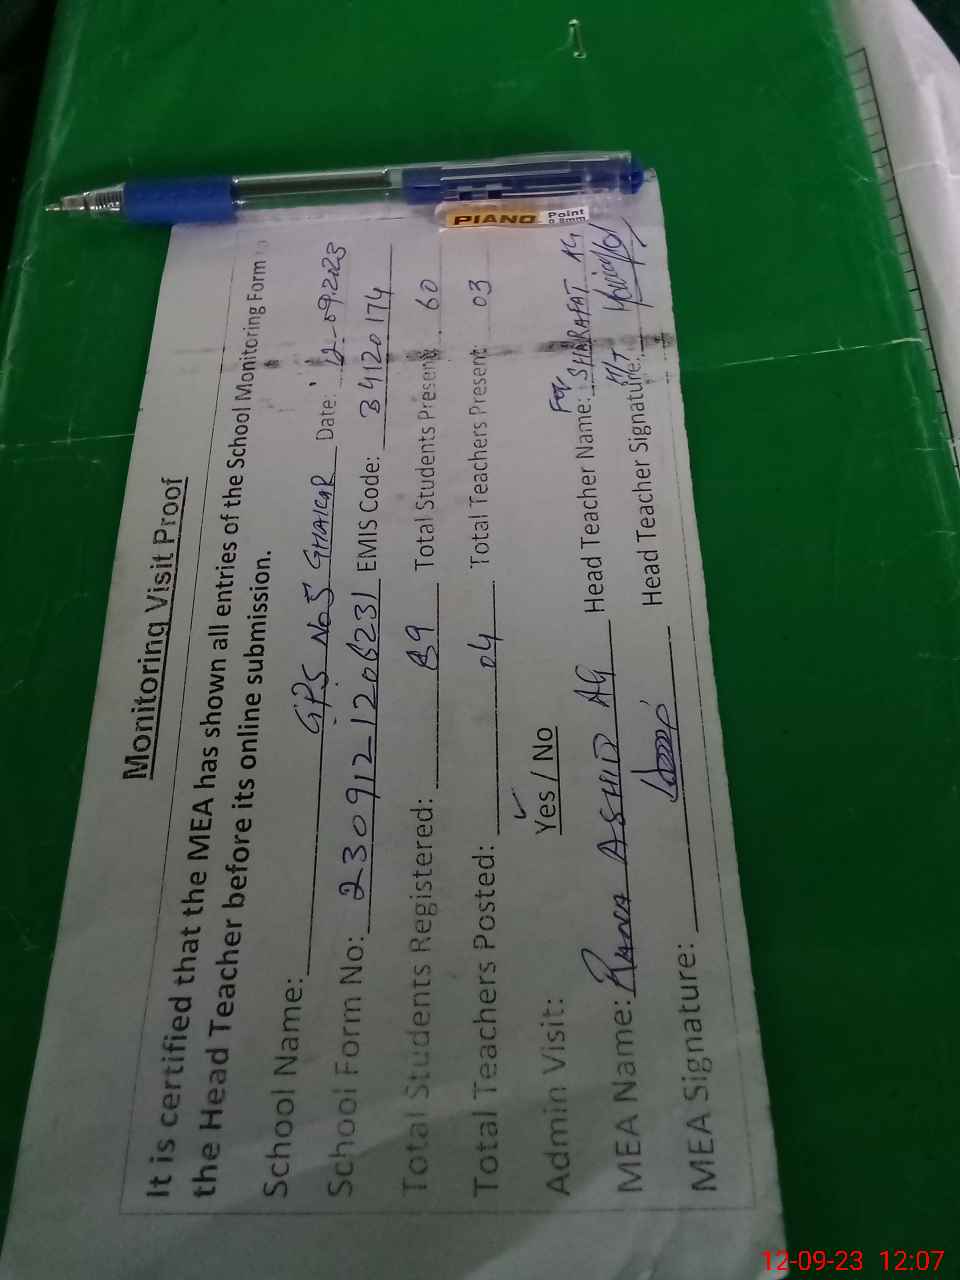 Monitoring Visit Proof
It is certified that the MEA has shown all entries of the School Monitoring Form to
the Head Teacher before its online submission.
School Name: GPS No 5 GHAKAR Date: 12-09-2023
School Form No: 230912-1206231 EMIS Code: 34120174
Total Students Registered: 89 Total Students Present: 60
Total Teachers Posted: 04 Total Teachers Present: 03
Admin Visit: Yes / No
MEA Name: Rana ASHID Ali Head Teacher Name: For SHARAFAT Ali
MEA Signature: Head Teacher Signature:
PIANO Point 0.8mm
12-09-23 12:07